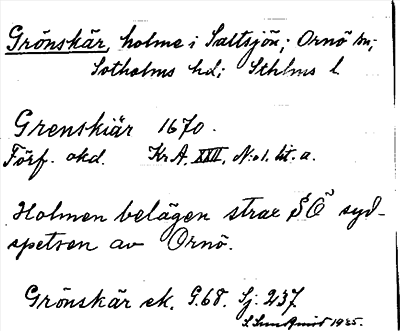 Grönskär, holme i Saltsjön; Ornö sn;
Sotholms hd; Sthlms l
Grenskiär 1670.
Förf. okd. Kr.A. XXII, No1. lit. a.
Holmen belägen strax SÖ syd-
spetsen av Ornö.
Grönskär ek. G.68. Sj. 237
S. Sundqvist 1935.